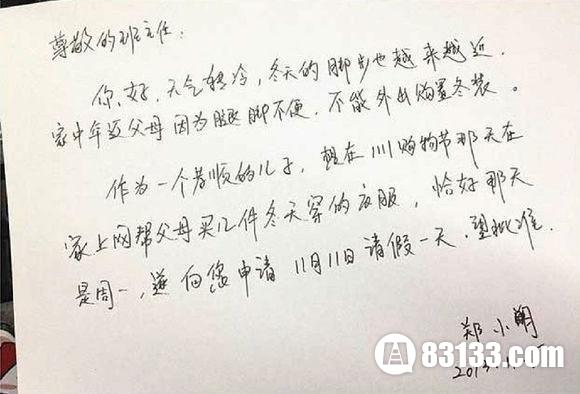 尊敬的班主任:
你好,天气转冷,冬天的脚步也越来越近.
家中年迈父母因为腿脚不便,不能外出购置冬装。
作为一个孝顺的儿子,想在1111购物节那天在
家上网帮父母买几件冬天穿的衣服,恰好那天
是周一,遂向您申请11月11日请假一天.望批准.
郑小明
83133.com
2013.